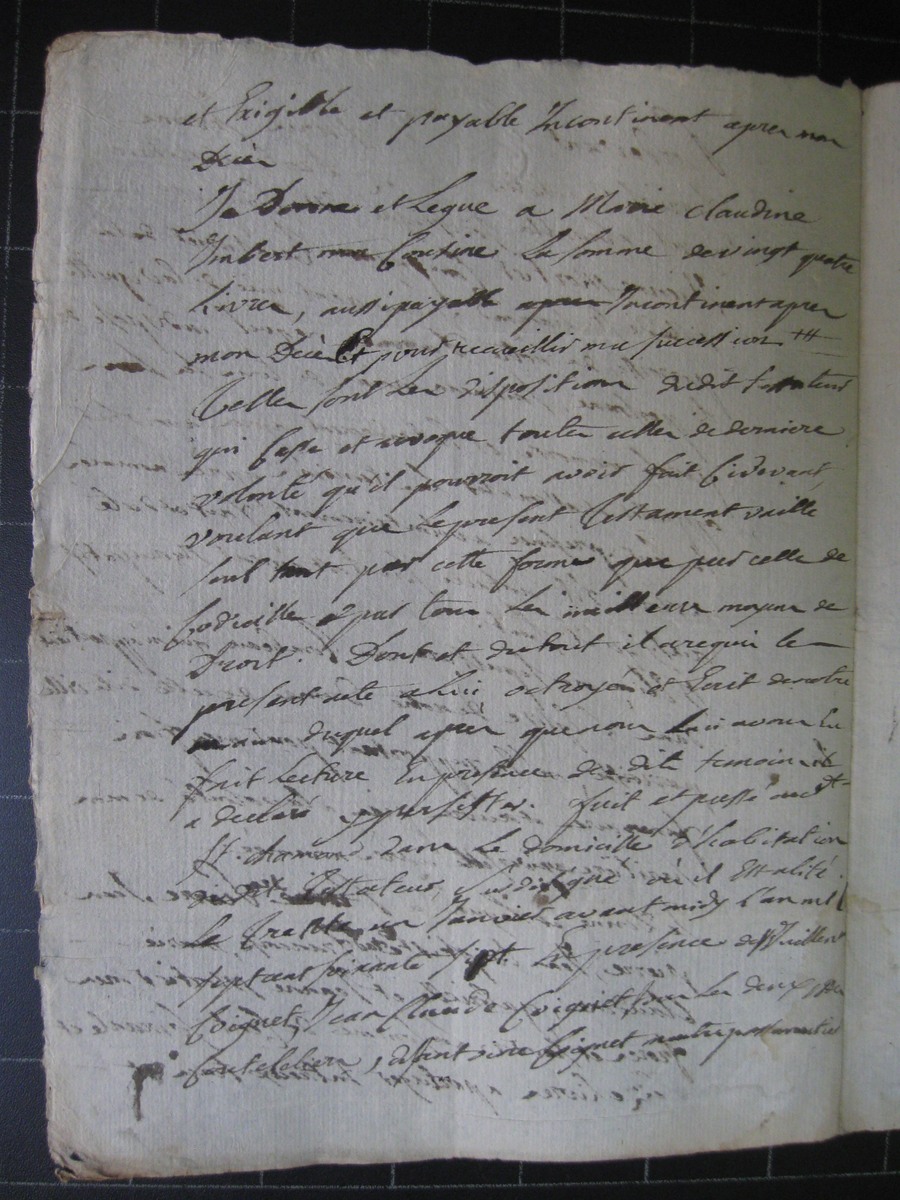 et Exigible et payable Incontinent apres mon
Décès
Je Donne et Legue a Marie claudine
Imbert ma Cousine La somme de vingt quatre
Livres, aussi payable apres Incontinent apres
mon Décè Et pour recueillir ma succession
Telles sont Les dispositions dudit testateur
qui Casse et revoque toutes celles de derniere
volonté qu'il pourroit avoir fait Cidevant,
voulant que Le present Testament vaille
tant par cette forme que par celle de
Codicille & par tous Les meilleurs moyens de
Droit. Dont et du tout il a requis le
present acte a Lui octroyé et Ecrit de notre
main duquel apres que nous Lui avons Eu
fait Lecture En presence des dits temoins il
a declaré y persister. fait et passé audt
St chamond dans Le domicille d'habitation
dudt testateur, susdesigné où il est alité
Le trente un Janvier avant midy L'an mil
sept cent soixante sept En presence de
Coignet, Jean Claude Coignet tous Les deux
Coignet maitre passementier